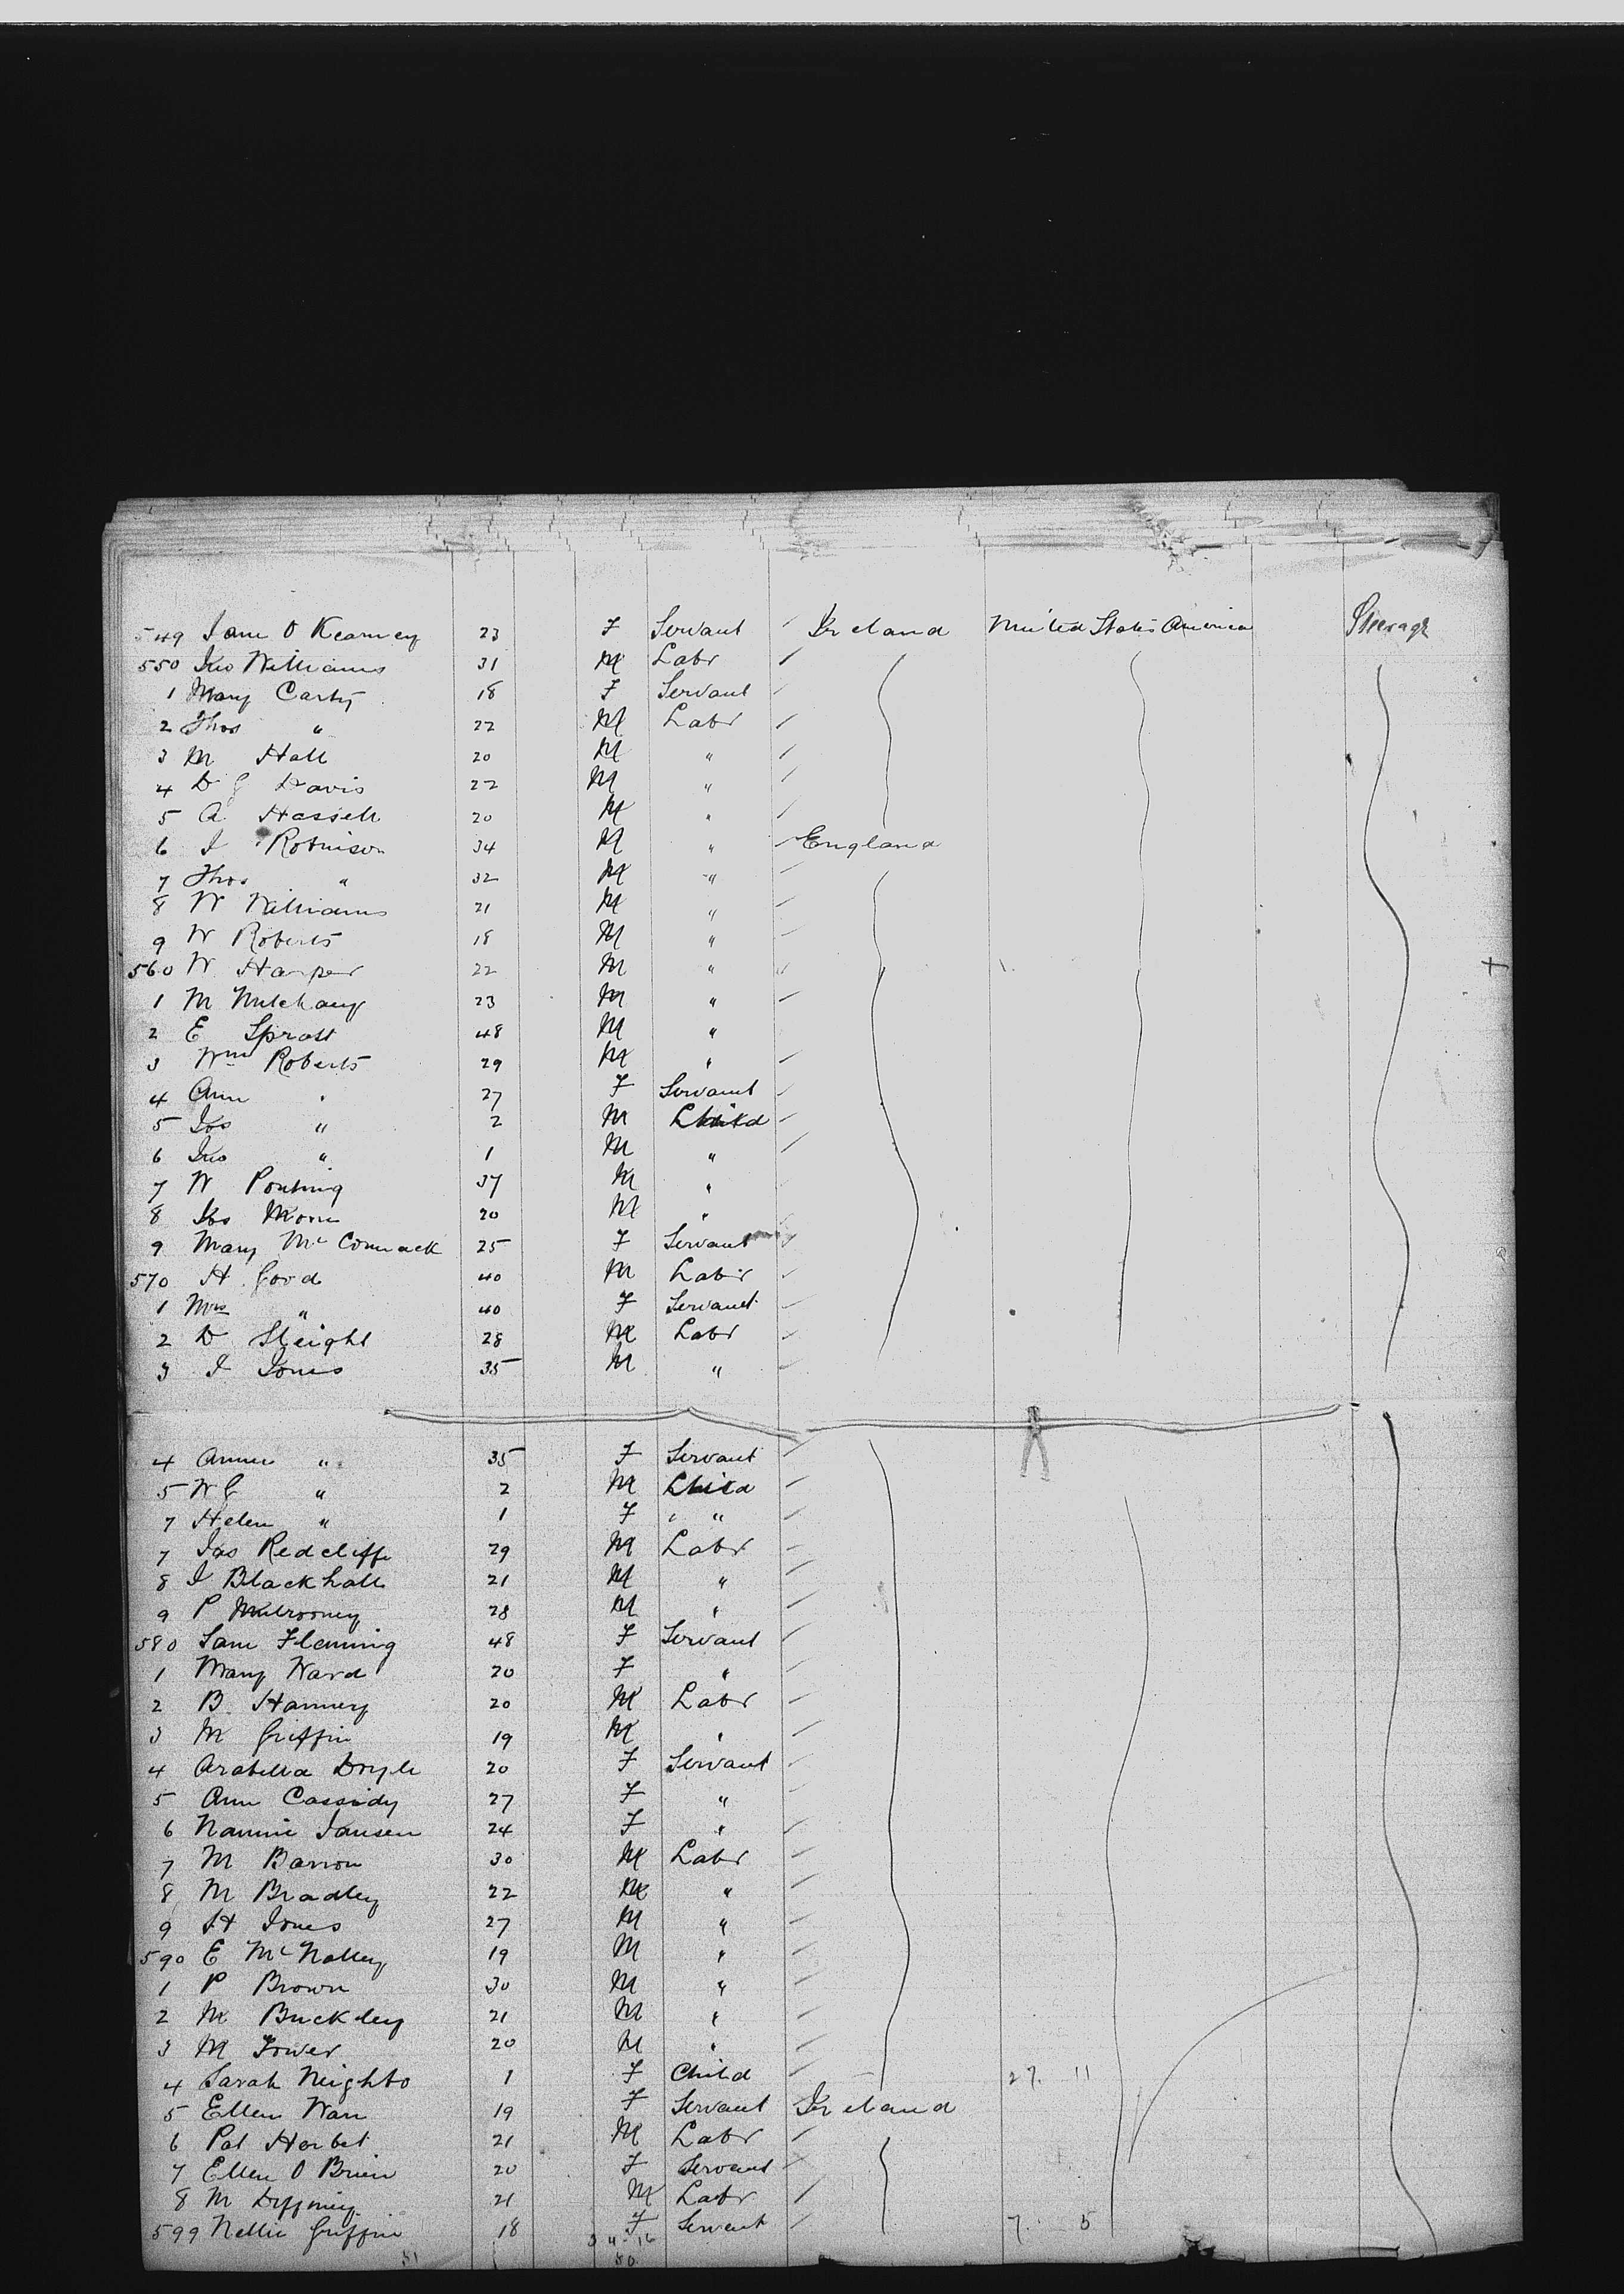 549 Jane O Kearney 23 F Servant Ireland United States America Steerage
550 Jno Williams 31 M Labr
1 Mary Carty 18 F Servant
2 Thos " 22 M Labr
3 M Hall 20 M "
4 D G Davis 22 M "
5 A. Hassell 20 M "
6 J Robinson 34 M " England
7 Thos " 32 M "
8 W Williams 21 M "
9 W Roberts 18 M "
560 W. Harper 22 M "
1 M 23 M "
2 E Spratt 48 M "
3 Wm Roberts 29 M "
4 Ann " 27 F Servant
5 Jos " 2 M Child
6 Jno " 1 M "
7 W Ponting 37 M "
8 Jos 20 M "
9 Mary Mc Cormack 25 F Servant
570 H. Good 40 M Labr
1 Mrs " 40 F Servant
2 D Sleight 28 M Labr
3 J Jones 35 M "
4 Annie " 35 F Servant
5 W G " 2 M Child
7 Helen " 1 F "
7 Jas Redcliffe 29 M Labr
8 J Blackhall 21 M "
9 P Mulrooney 28 M "
580 Jane Fleming 48 F Servant
1 Mary Ward 20 F "
2 B. Hannery 20 M Labr
3 M Griffin 19 M "
4 Arabella Doyle 20 F Servant
5 Ann Cassidy 27 F "
6 Nannie Jansen 24 F "
7 M Barron 30 M Labr
8 M Bradley 22 M "
9 H Jones 27 M "
590 E McNalley 19 M "
1 P Brown 30 M "
2 M Buckley 21 M "
3 M Power 20 M "
4 Sarah Neighbo 1 F Child 27. 11
5 Ellen Warr 19 F Servant Ireland
6 Pat Herbet 21 M Labr
7 Ellen O Brien 20 F Servant
8 M 21 M Labr
599 Nellie Griffin 18 F Servant 7. 5